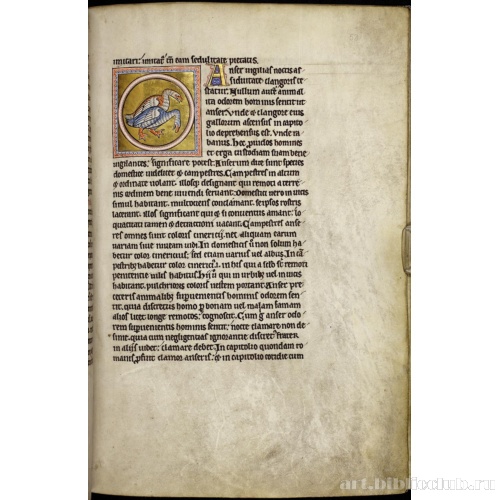 imitari. imitat᷑ cū eam sedulitate pietatis.
Anser vigilias noctis as
siduitate clangoris te
statur. Nullum aut̄ animal
ita odorem hominis sentit ut
anser. Unde & clangore eius
gallorum ascensus in capito
lio deprehensus est. Unde ra
banus. hec providos homines
et erga custodiam suam bene
vigilantes, significare potest. Anserum due sunt species
domestice videlicet & campestres. Campestres in altum
& ordinate volant. illosq; designant qui remoti a terre
nis ordinem bene vivendi servant. Domestice vero in vicis
simul habitant. conclamant. seipsos rostris
lacerant. illos significant qui & si conventus amant. lo
quacitati tamen & detractioni vacant. Campestres ans
eres omnes sunt coloris cinericij. nec aliquem earum
varium sive nitidum vidi. In domesticis ū non solum ha
betur color cinericius; sed etiam varius vel albus. In cā
pestrib; habetur color cinericius. in his qui a se remoti
penitentie vilis habitus. Hij ū qui in urbib; vel in vicis
habitant. pulchrioris coloris vestem portant. Anser pre
ceteris animalib; supvenientis hominis odorem sen
tit. quia discretus homo p bonam vel malam famam
alios licet longe remotos. cognoscit. Cum g̃ anser odo
rem supvenientis hominis sentit. nocte clamare non de
sinit. quia cum negligencias ignorantie discret᷑ frater
in aliis videt; clamare debet. In capitolio quondam ro
manis pfuit clamor anseris. & in capitolio cotidie cum
art.biblioclub.ru